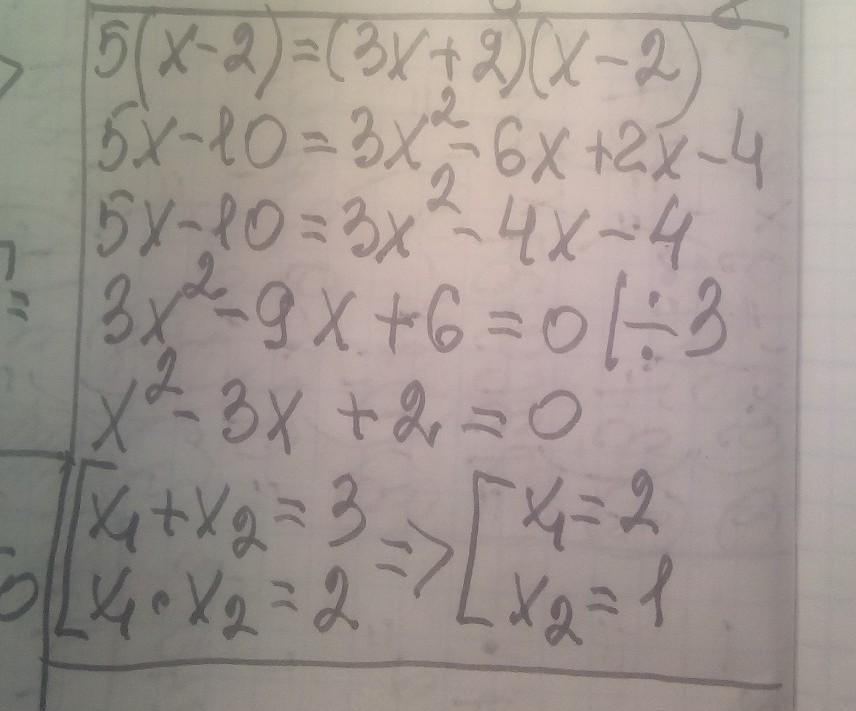 5(x-2)=(3x+2)(x-2)
5x-10=3x²-6x+2x-4
5x-10=3x²-4x-4
3x²-9x+6=0 |÷3
x²-3x+2=0
[x₁+x₂=3 => [x₁=2
x₁·x₂=2 x₂=1